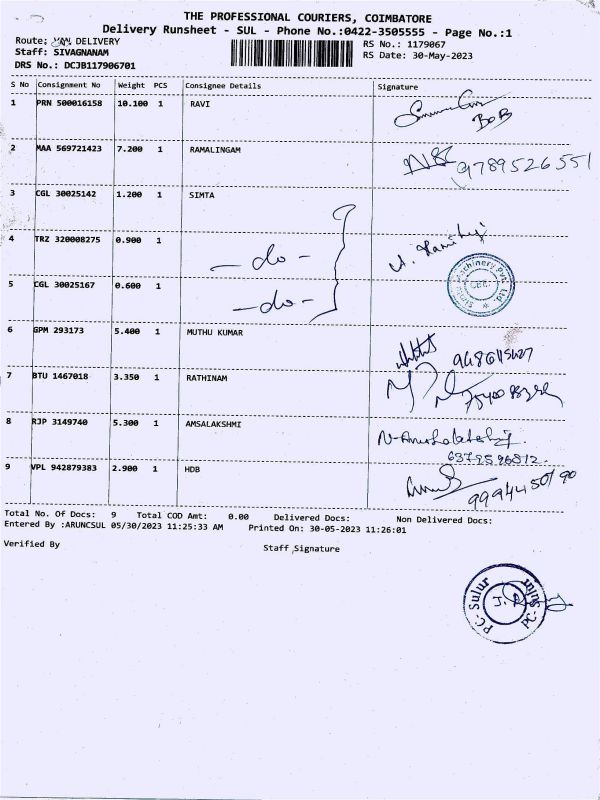 THE PROFESSIONAL COURIERS, COIMBATORE
Delivery Runsheet - SUL - Phone No.:0422-3505555 - Page No.:1
Route: VAN DELIVERY
Staff: SIVAGNANAM
DRS No.: DCJB117906701
RS No.: 1179067
RS Date: 30-May-2023
S No Consignment No Weight PCS Consignee Details Signature
1 PRN 500016158 10.100 1 RAVI
BOB
2 MAA 569721423 7.200 1 RAMALINGAM
9789526551
3 CGL 30025142 1.200 1 SIMTA
4 TRZ 320008275 0.900 1
- do -
5 CGL 30025167 0.600 1
- do -
Machinery Pvt. Ltd.
6 GPM 293173 5.400 1 MUTHU KUMAR
7 BTU 1467018 3.350 1 RATHINAM
8 RJP 3149740 5.300 1 AMSALAKSHMI
6379596812
9 VPL 942879383 2.900 1 HDB
9994450190
Total No. Of Docs: 9 Total COD Amt: 0.00 Delivered Docs: Non Delivered Docs:
Entered By :ARUNCSUL 05/30/2023 11:25:33 AM Printed On: 30-05-2023 11:26:01
Verified By Staff Signature
PC- Sulur PC- Sulur